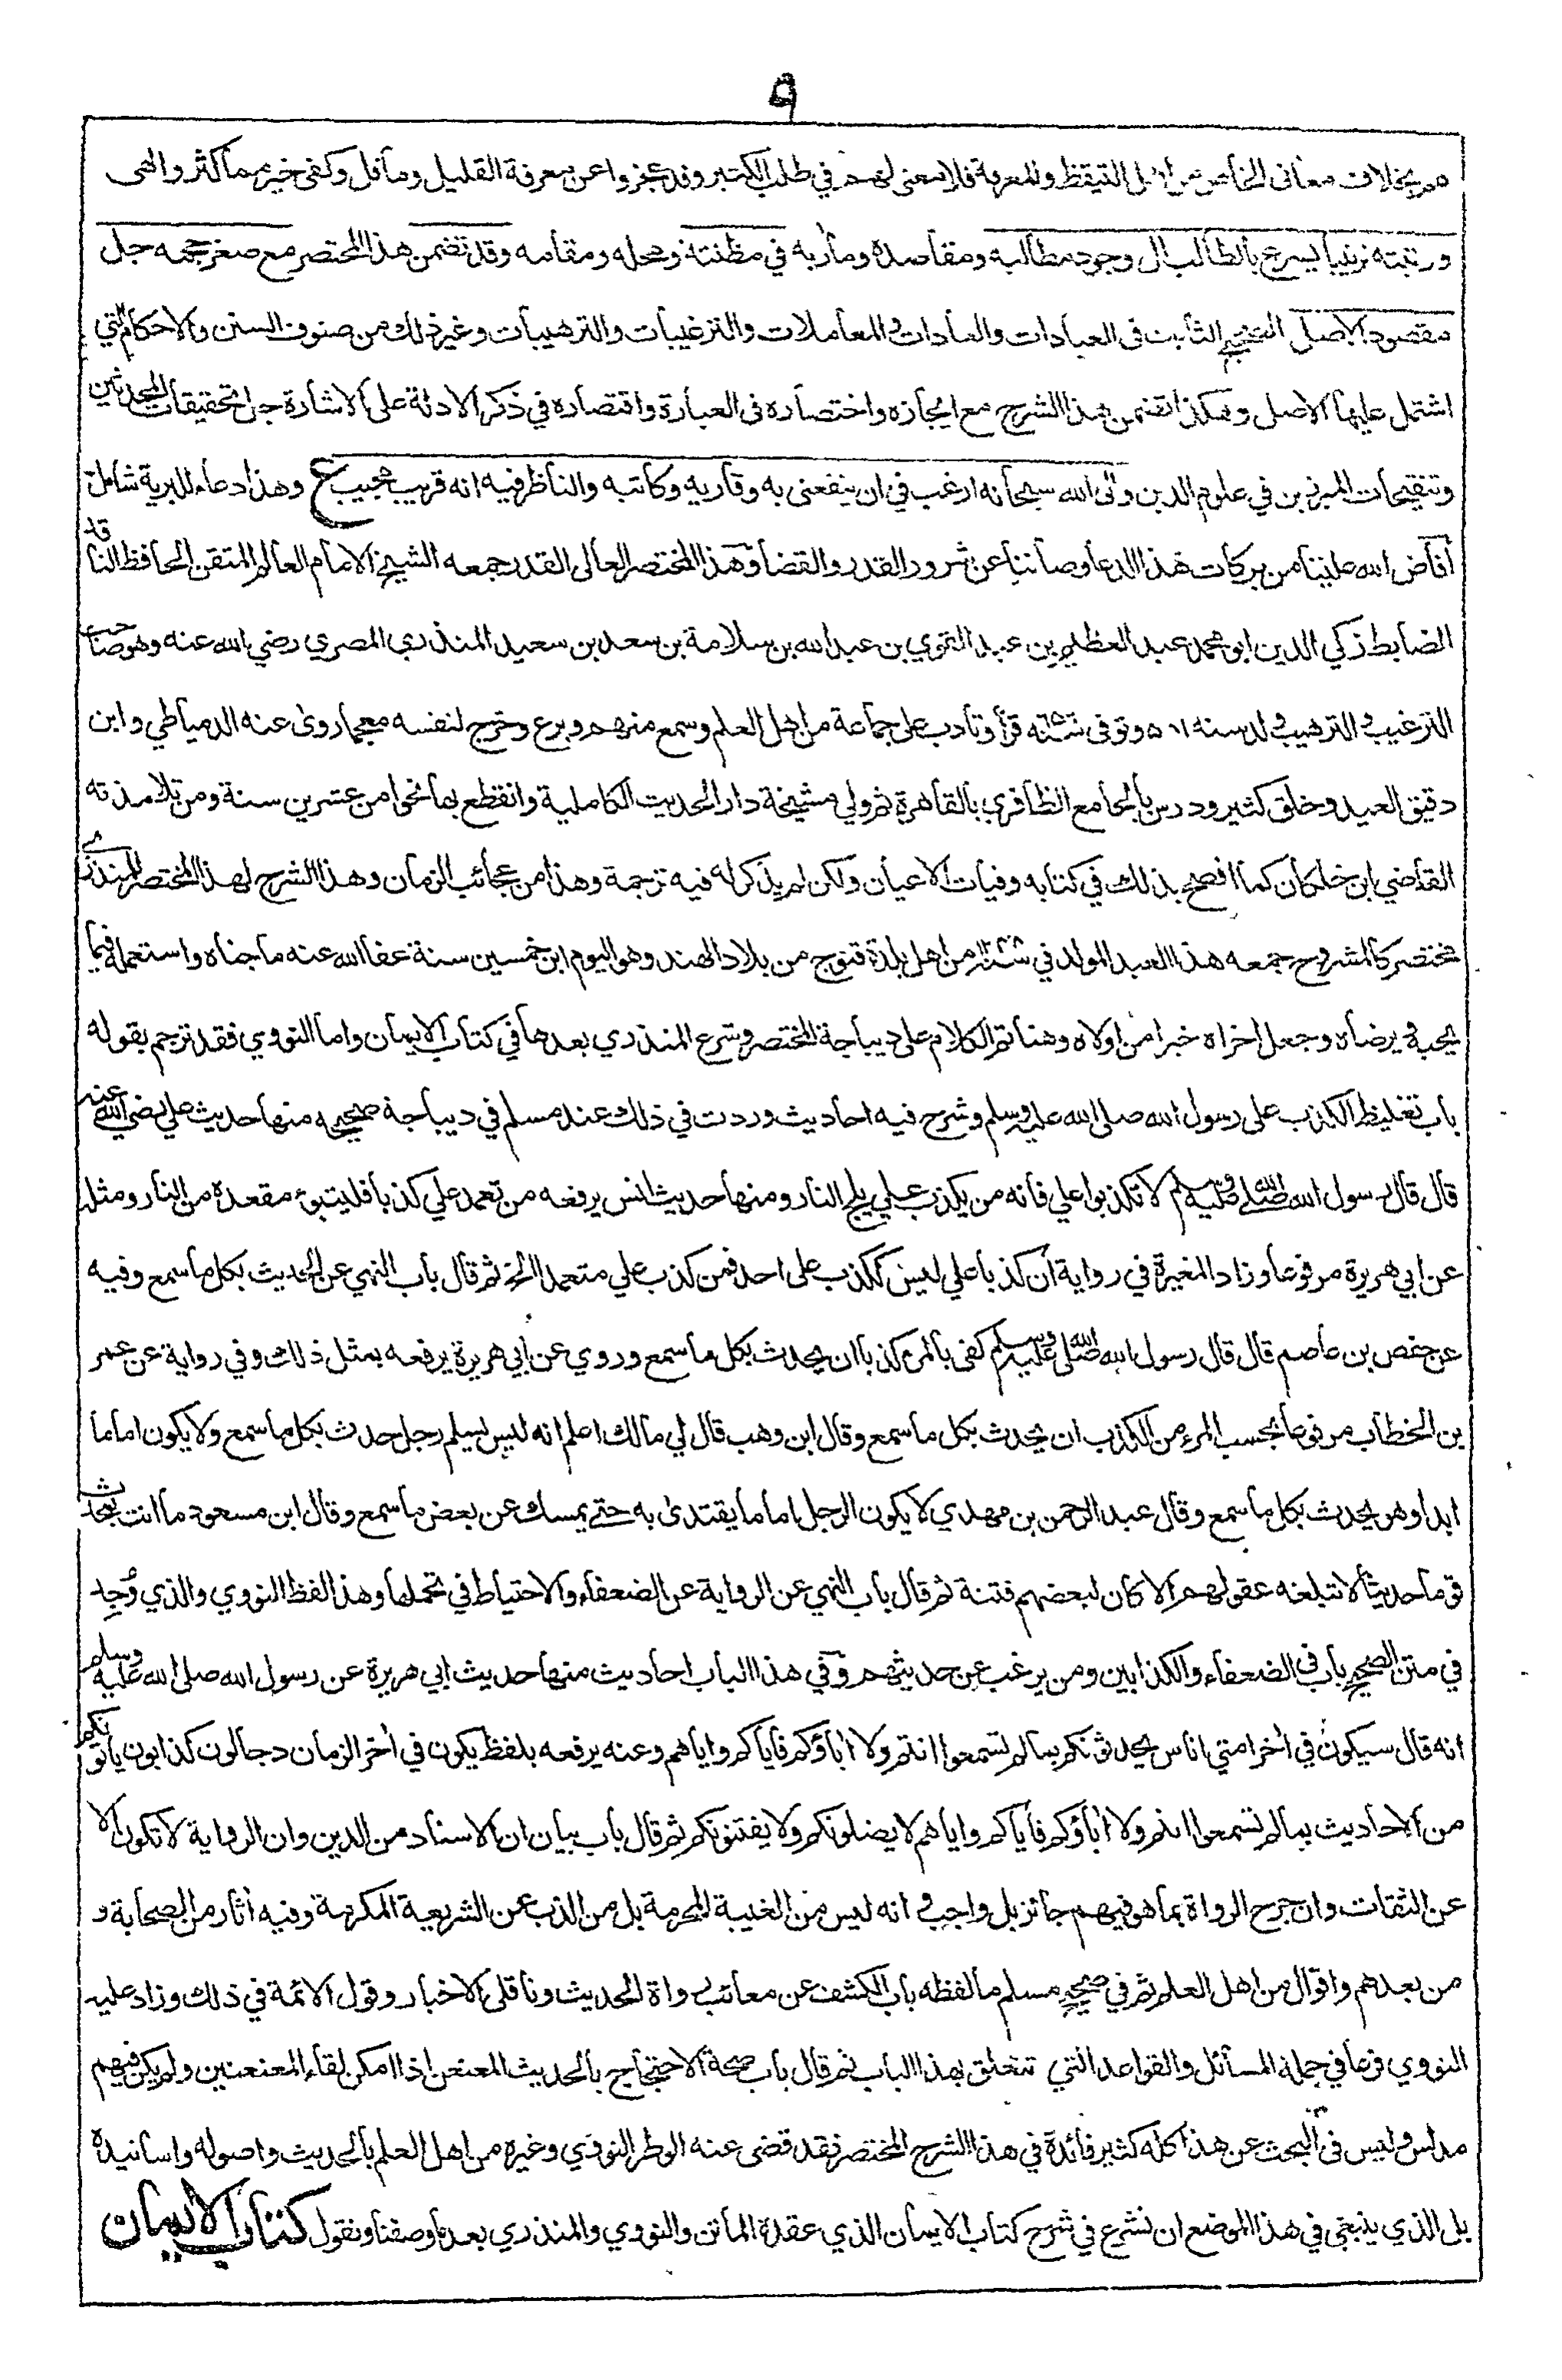 ٩
هم بخلاف معاني الخاص من اهل التيقظ والمعرفة فلا معنى لهم في طلب الكثير وقد عجزوا عن معرفة القليل وما قل وكفى خير مما كثر والهى
ورتبته ترتيبا يسرع بالطالب الى وجود مطالبه ومقاصده ومأربه في مظنته ومحله ومقامه وقد تضمن هذا المختصر مع صغر حجمه جل
مقصود الاصل الصحيح الثابت فى العبادات والعادات والمعاملات والترغيبات والترهيبات وغير ذلك من صنوف السنن والاحكام التي
اشتمل عليها الاصل وهكذا تضمن هذا الشرح مع ايجازه واختصاره فى العبارة واقتصاره في ذكر الادلة على الاشارة جل تحقيقات المحدثين
وتنقيحات المبرزين في علوم الدين والى الله سبحانه ارغب في ان ينفعني به وقاريه وكاتبه والناظر فيه انه قريب مجيب ع وهذا دعاء للبرية شامل
أفاض الله علينا من بركات هذا الدعا وصاننا عن شرور القدر والقضا وهذا المختصر العالى القدر جمعه الشيخ الامام العالم المتقن الحافظ الناقد
الضابط زكي الدين ابو محمد عبد العظيم بن عبد القوي بن عبد الله بن سلامة بن سعد بن سعيد المنذري المصري رضي الله عنه وهو صاحب
الترغيب والترهيب ولد سنه ٥٨١ وتوفى سنة ٦٥٦ قرأ وتأدب على جماعة من اهل العلم وسمع منهم وبرع وخرج لنفسه معجما روى عنه الدمياطي وابن
دقيق العيد وخلق كثير ودرس بالجامع الظافري بالقاهرة ثم ولي مشيخة دار الحديث الكاملية وانقطع بها نحوا من عشرين سنة ومن تلامذته
القاضي ابن خلكان كما افصح بذلك في كتابه وفيات الاعيان ولكن لم يذكر له فيه ترجمة وهذا من عجائب الزمان وهذا الشرح لهذا المختصر للمنذري
مختصر كالمشروح جمعه هذا العبد المولد في من اهل بلدة قنوج من بلاد الهند وهو اليوم ابن خمسين سنة عفا الله عنه ما جناه واستعمله فيما
يحبه ويرضاه وجعل اخراه خيرا من اولاه وهنا تم الكلام على ديباجة المختصر وشرع المنذري بعدها في كتاب الايمان واما النووي فقد ترجم بقوله
باب تغليظ الكذب على رسول الله صلى الله عليه وسلم وشرح فيه احاديث وردت في ذلك عند مسلم في ديباجة صحيحه منها حديث علي رضي الله عنه
قال قال رسول الله صلى الله عليه وسلم لا تكذبوا علي فانه من يكذب علي يلج النار ومنها حديث انس يرفعه من تعمد علي كذبا فليتبوء مقعده من النار ومثله
عن ابي هريرة مرفوعا وزاد المغيرة في رواية ان كذبا علي ليس ككذب على احد فمن كذب علي متعمدا الخ ثم قال باب النهي عن الحديث بكل ما سمع وفيه
عن حفص بن عاصم قال قال رسول الله صلى الله عليه وسلم كفى بالمرء كذبا ان يحدث بكل ما سمع وروي عن ابي هريرة يرفعه بمثل ذلك وفي رواية عن عمر
بن الخطاب مرفوعا بحسب المرء من الكذب ان يحدث بكل ما سمع وقال ابن وهب قال لي مالك اعلم انه ليس يسلم رجل حدث بكل ما سمع ولا يكون اماما
ابدا وهو يحدث بكل ما سمع وقال عبد الرحمن بن مهدي لا يكون الرجل اماما يقتدى به حتى يمسك عن بعض ما سمع وقال ابن مسعود ما انت بمحدث
قوما حديثا لا تبلغه عقولهم الا كان لبعضهم فتنة ثم قال باب النهي عن الرواية عن الضعفاء والاحتياط في تحملها وهذا لفظ النووي والذي وُجِد
في متن الصحيح باب فى الضعفاء والكذابين ومن يرغب عن حديثهم وفي هذا الباب احاديث منها حديث ابي هريرة عن رسول الله صلى الله عليه وسلم
انه قال سيكون في اخر امتي اناس يحدثونكم بما لم تسمعوا انتم ولا اباؤكم فاياكم واياهم وعنه يرفعه بلفظ يكون في اخر الزمان دجالون كذابون يأتونكم
من الاحاديث بما لم تسمعوا انتم ولا اباؤكم فاياكم واياهم لا يضلونكم ولا يفتنونكم ثم قال باب بيان ان الاسناد من الدين وان الرواية لا تكون الا
عن الثقات وان جرح الرواة بما هو فيهم جائز بل واجب وانه ليس من الغيبة المحرمة بل من الذب عن الشريعة المكرمة وفيه اثار من الصحابة و
من بعدهم واقوال من اهل العلم ثم في صحيح مسلم ما لفظه باب الكشف عن معائب رواة الحديث وناقلى الاخبار وقول الائمة في ذلك وزاد عليه
النووي فرعا في جملة المسائل والقواعد التي تتعلق بهذا الباب ثم قال باب صحة الاحتجاج بالحديث المعنعن اذا امكن لقاء المعنعنين ولم يكن فيهم
مدلس وليس فى البحث عن هذا كله كثير فائدة في هذا الشرح المختصر فقد قضى عنه الوطر النووي وغيره من اهل العلم بالحديث واصوله واسانيده
بلى الذي ينبغي في هذا الموضع ان نشرع في شرح كتاب الايمان الذي عقده الماتن والنووي والمنذري بعد ما وصفنا ونقول كتاب الايمان